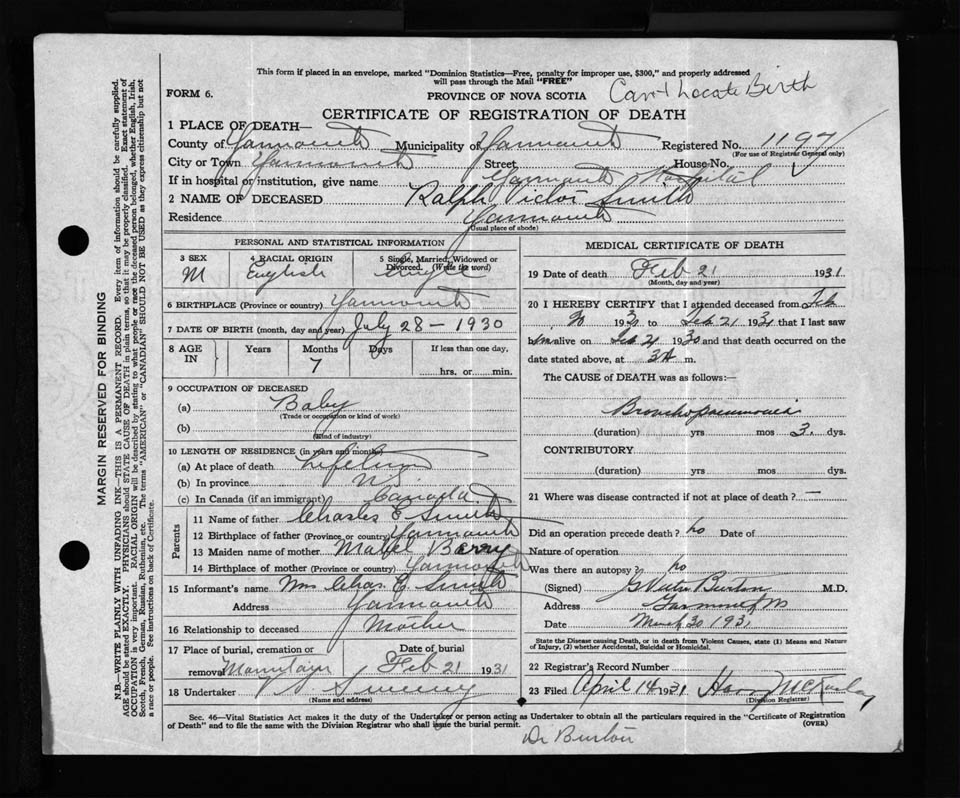 This form if placed in an envelope, marked "Dominion Statistics—Free, penalty for improper use, $300," and properly addressed
will pass through the Mail "FREE"
FORM 6.
PROVINCE OF NOVA SCOTIA
Can't Locate Birth
CERTIFICATE OF REGISTRATION OF DEATH
1 PLACE OF DEATH—
County of Yarmouth Municipality of Yarmouth Registered No. 1197
(For use of Registrar General only)
City or Town Yarmouth Street House No.
If in hospital or institution, give name Yarmouth Hospital
2 NAME OF DECEASED Ralph Victor Smith
Residence Yarmouth
(Usual place of abode)
PERSONAL AND STATISTICAL INFORMATION
3 SEX 4 RACIAL ORIGIN 5 Single, Married, Widowed or
Divorced. (Write the word)
M English Single
6 BIRTHPLACE (Province or country) Yarmouth
7 DATE OF BIRTH (month, day and year) July 28 - 1930
8 AGE IN Years Months Days If less than one day,
7 hrs. or min.
9 OCCUPATION OF DECEASED
(a) Baby
(Trade or occupation or kind of work)
(b)
(Kind of industry)
10 LENGTH OF RESIDENCE (in years and months)
(a) At place of death Lifetime
(b) In province
(c) In Canada (if an immigrant) Canada
Parents
11 Name of father Charles E Smith
12 Birthplace of father (Province or country) Yarmouth
13 Maiden name of mother Mabel
14 Birthplace of mother (Province or country) Yarmouth
15 Informant's name Mrs Chas. E. Smith
Address Yarmouth
16 Relationship to deceased Mother
17 Place of burial, cremation or Date of burial
removal Feb 21 1931
18 Undertaker Sweeny
(Name and address)
MEDICAL CERTIFICATE OF DEATH
19 Date of death Feb 21 1931
(Month, day and year)
20 I HEREBY CERTIFY that I attended deceased from Feb
193 to Feb 21 1931 that I last saw
him alive on Feb 21 1930 and that death occurred on the
date stated above, at 3 A m.
The CAUSE of DEATH was as follows:—
Bronchopneumonia
(duration) yrs mos 3 dys.
CONTRIBUTORY
(duration) yrs mos dys.
21 Where was disease contracted if not at place of death? —
Did an operation precede death? no Date of
Nature of operation
Was there an autopsy? no
(Signed) Burton M.D.
Address Yarmouth NS
Date March 30 1931
State the Disease causing Death, or in death from Violent Causes, state (1) Means and Nature
of Injury, (2) whether Accidental, Suicidal or Homicidal.
22 Registrar's Record Number
23 Filed April 14 1931
(Division Registrar)
Sec. 46—Vital Statistics Act makes it the duty of the Undertaker or person acting as Undertaker to obtain all the particulars required in the "Certificate of Registration
of Death" and to file the same with the Division Registrar who shall issue the burial permit. (OVER)
Dr Burton
MARGIN RESERVED FOR BINDING
N.B.—WRITE PLAINLY WITH UNFADING INK—THIS IS A PERMANENT RECORD. Every item of information should be carefully supplied.
AGE should be stated EXACTLY. PHYSICIANS should STATE CAUSE OF DEATH in plain terms, so that it may be properly classified. Exact statement of
OCCUPATION is very important. RACIAL ORIGIN will be described by stating to what people or race the deceased person belonged, whether English, Irish,
Scotch, French, German, Russian, Ruthenian, etc. The terms "AMERICAN" or "CANADIAN" SHOULD NOT BE USED as they express citizenship but not
a race or people. See instructions on back of Certificate.